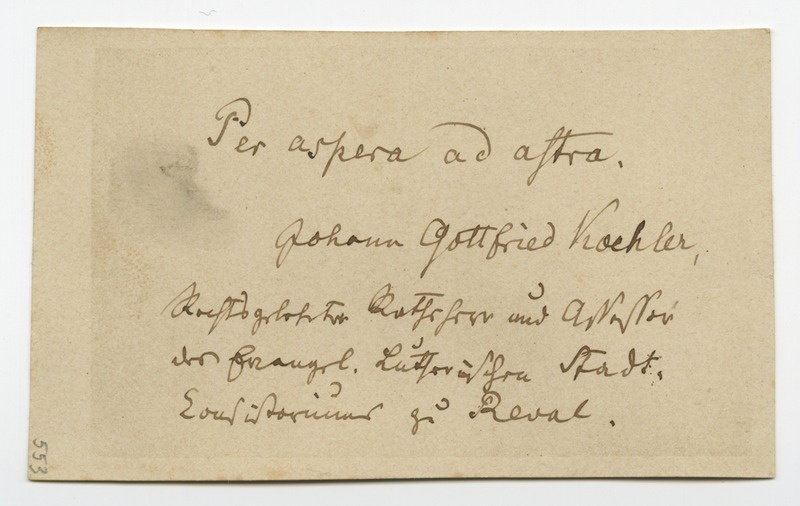 Per aspera ad astra.
Johann Gottfried Koehler,
Rechtsgelehrter Rathsherr und Assessor
des Evangel. Lutherischen Stadt-
Consistoriums zu Reval.
553